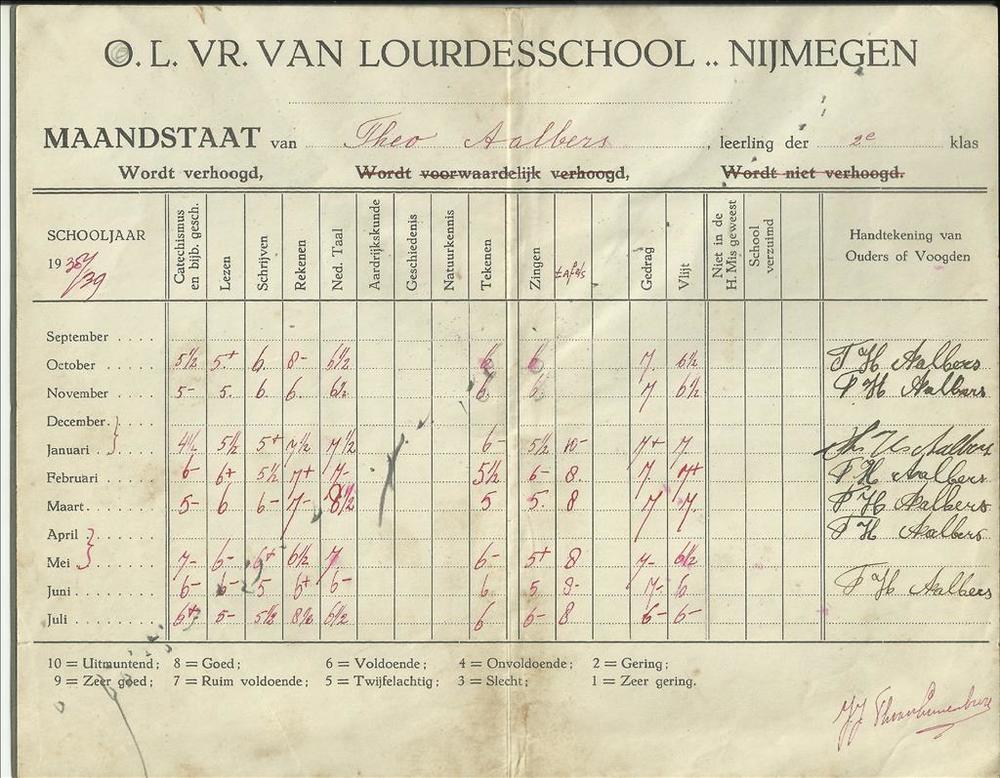 O. L. VR. VAN LOURDESSCHOOL .. NIJMEGEN
MAANDSTAAT van Theo Aalbers, leerling der 2e klas
Wordt verhoogd, Wordt voorwaardelijk verhoogd, Wordt niet verhoogd.
SCHOOLJAAR 1938/39 Catechismus en bijb. gesch. Lezen Schrijven Rekenen Ned. Taal Aardrijkskunde Geschiedenis Natuurkennis Tekenen Zingen Gedrag Vlijt Niet in de H. Mis geweest School verzuimd Handtekening van Ouders of Voogden
September . . . .
October . . . . . 5½ 5+ 6. 8- 6½ 6 6 7. 6½ T H Aalbers
November . . . . 5- 5. 6. 6. 6½ 6. 6. 7 6½ T H Aalbers
December. }
Januari . } . . . 4½ 5½ 5+ 7½ 7½ 6- 5½ 10- 7+ 7. Aalbers
Februari . . . . 6- 6+ 5½ 7+ 7- 5½ 6- 8. 7. 7+ T H Aalbers
Maart. . . . . . 5- 6 6- 7- 8½ 5 5. 8 7 7. T H Aalbers
April } . . . . . T H Aalbers
Mei } . . . . . 7- 6- 6+ 6½ 7. 6- 5+ 8 7- 6½
Juni . . . . . . 6- 6- 5 6+ 6- 6 5 8- 7- 6 T H Aalbers
Juli . . . . . . 6+ 5- 5½ 8½ 6½ 6 6- 8 6- 6-
10 = Uitmuntend; 8 = Goed; 6 = Voldoende; 4 = Onvoldoende; 2 = Gering;
9 = Zeer goed; 7 = Ruim voldoende; 5 = Twijfelachtig; 3 = Slecht; 1 = Zeer gering.